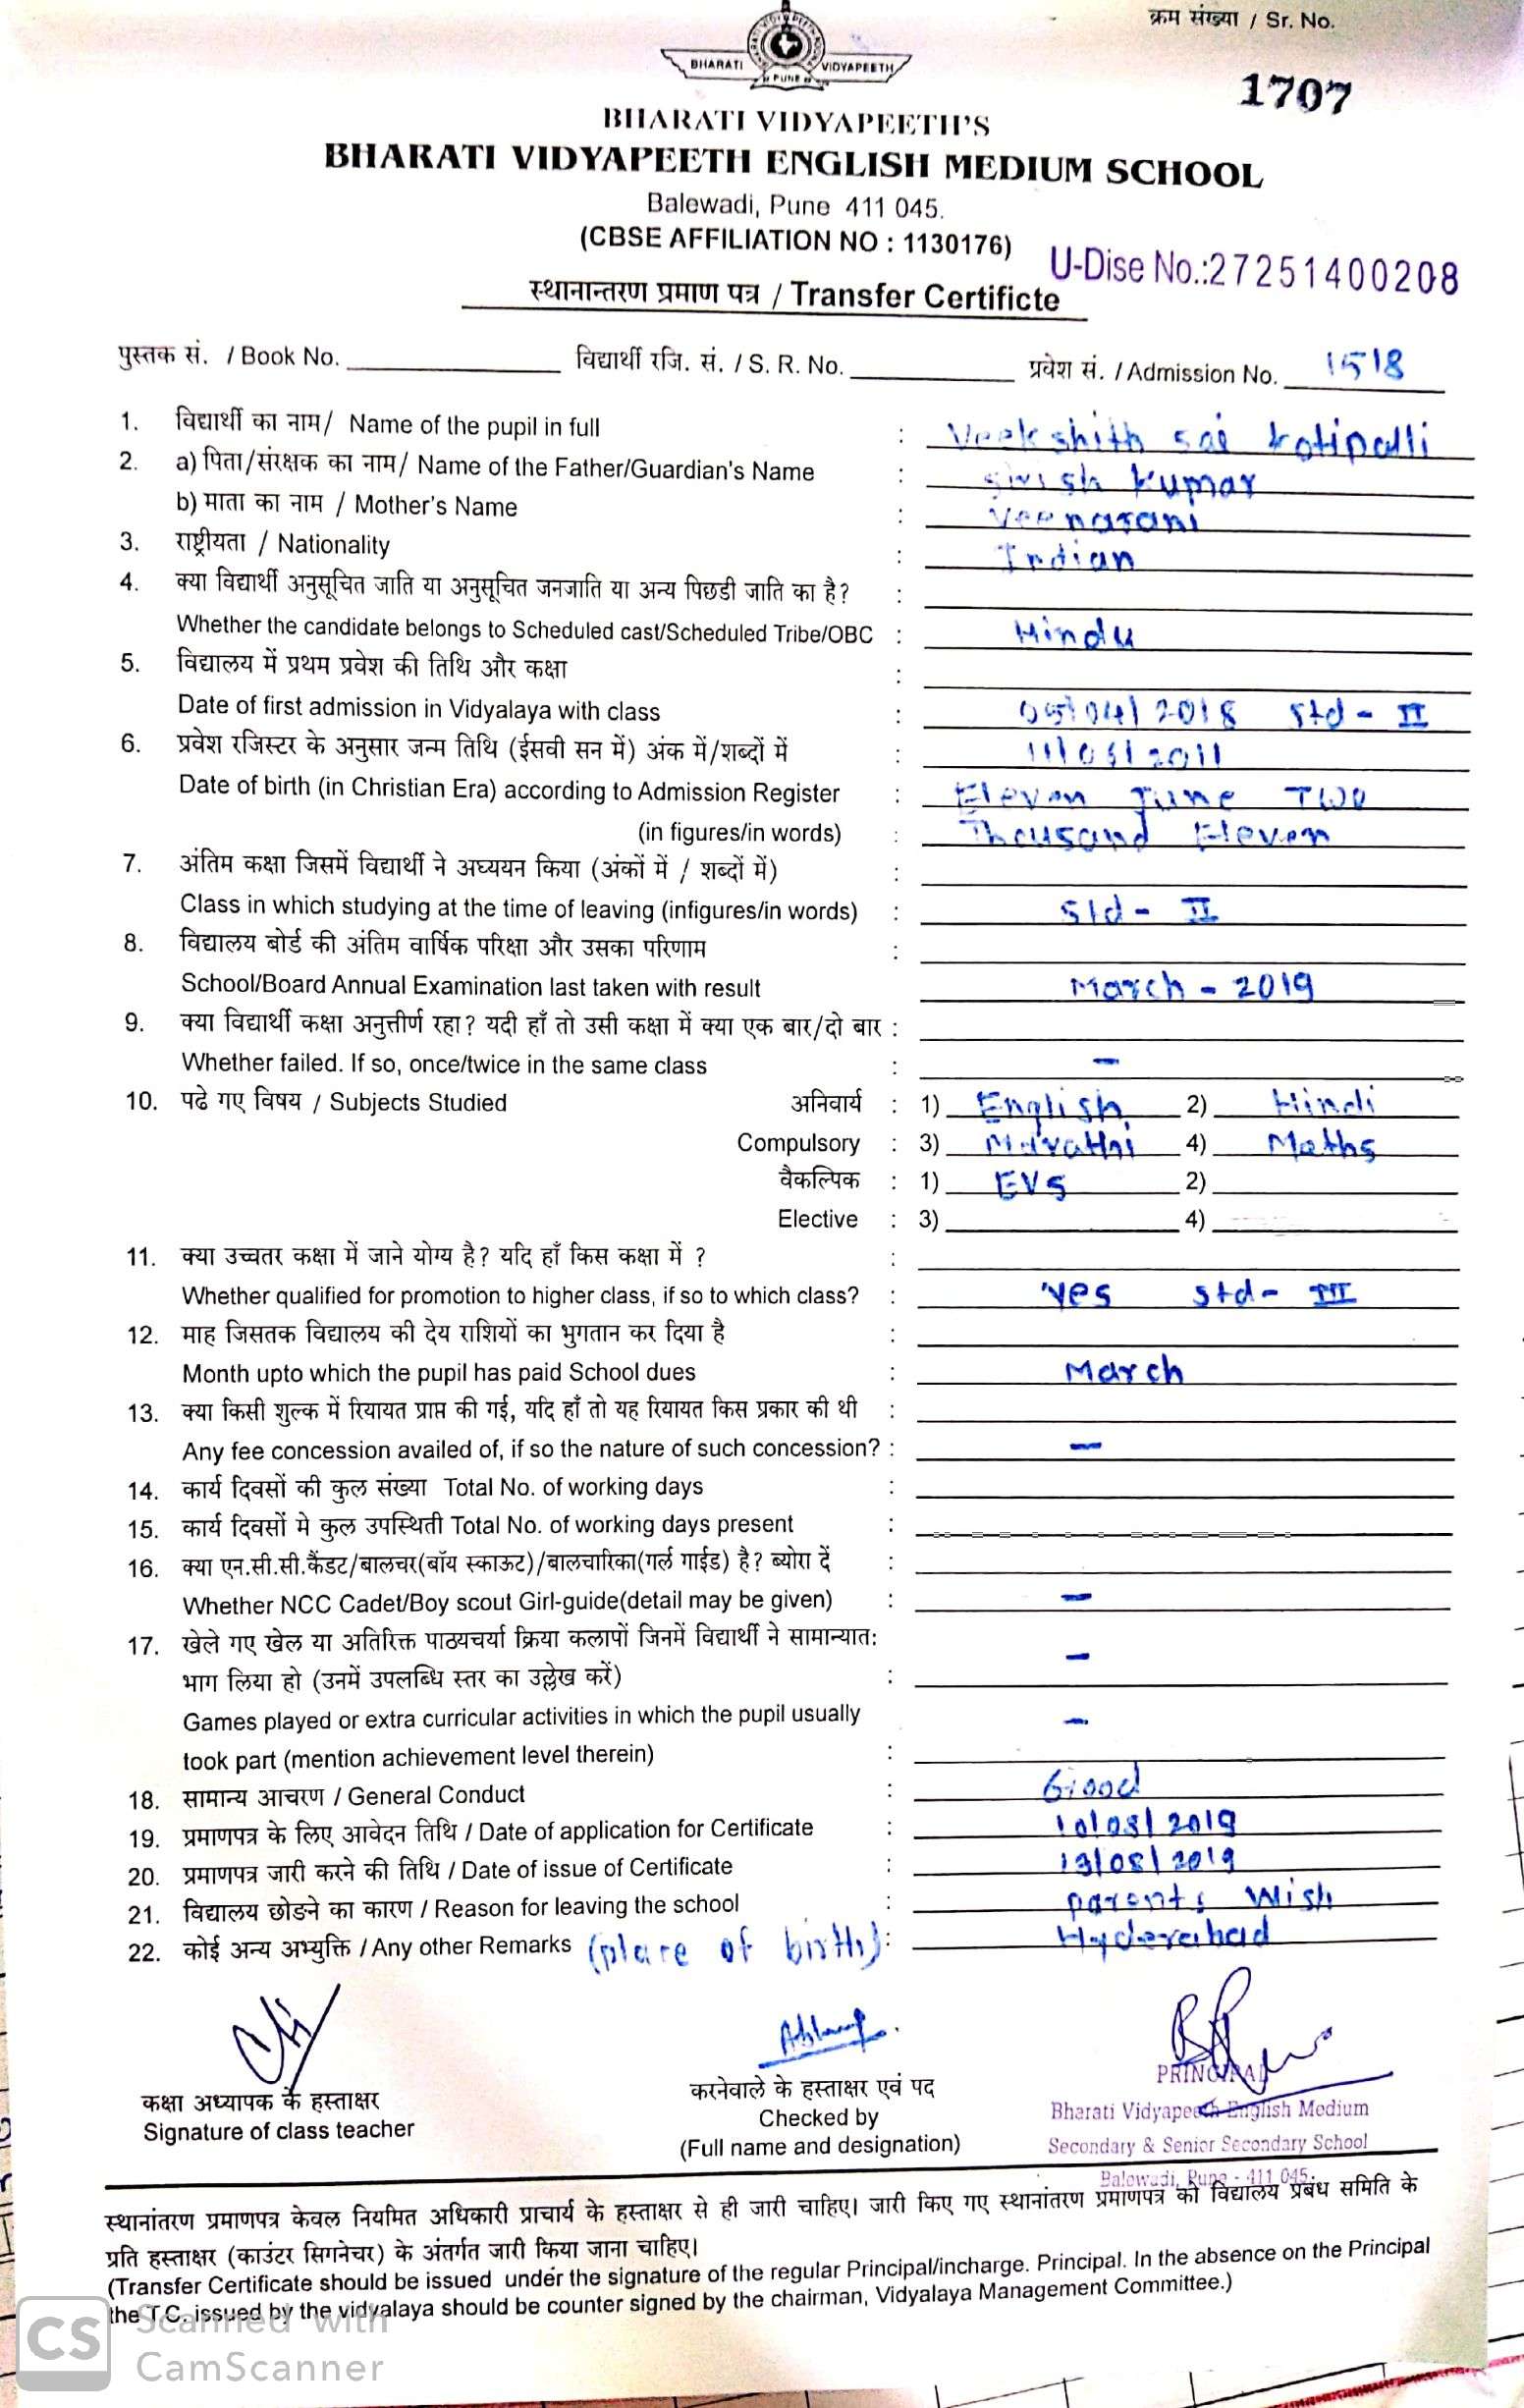 क्रम संख्या / Sr. No.
1707
BHARATI VIDYAPEETH
PUNE
BHARATI VIDYAPEETH'S
BHARATI VIDYAPEETH ENGLISH MEDIUM SCHOOL
Balewadi, Pune 411 045.
(CBSE AFFILIATION NO : 1130176)
U-Dise No.:27251400208
स्थानान्तरण प्रमाण पत्र / Transfer Certificte
पुस्तक सं. / Book No. विद्यार्थी रजि. सं. / S. R. No. प्रवेश सं. / Admission No. 1518
1. विद्यार्थी का नाम/ Name of the pupil in full : Veekshith sai kotipalli
2. a) पिता/संरक्षक का नाम/ Name of the Father/Guardian's Name : girish kumar
b) माता का नाम / Mother's Name : Veenarani
3. राष्ट्रीयता / Nationality : Indian
4. क्या विद्यार्थी अनुसूचित जाति या अनुसूचित जनजाति या अन्य पिछडी जाति का है? :
Whether the candidate belongs to Scheduled cast/Scheduled Tribe/OBC : Hindu
5. विद्यालय में प्रथम प्रवेश की तिथि और कक्षा :
Date of first admission in Vidyalaya with class : 05/04/2018 std - II
6. प्रवेश रजिस्टर के अनुसार जन्म तिथि (ईसवी सन में) अंक में/शब्दों में : 11/06/2011
Date of birth (in Christian Era) according to Admission Register : Eleven june Two
(in figures/in words) : Thousand Eleven
7. अंतिम कक्षा जिसमें विद्यार्थी ने अघ्ययन किया (अंकों में / शब्दों में) :
Class in which studying at the time of leaving (infigures/in words) : Std - II
8. विद्यालय बोर्ड की अंतिम वार्षिक परिक्षा और उसका परिणाम :
School/Board Annual Examination last taken with result March - 2019
9. क्या विद्यार्थी कक्षा अनुत्तीर्ण रहा? यदी हाँ तो उसी कक्षा में क्या एक बार/दो बार :
Whether failed. If so, once/twice in the same class : -
10. पढे गए विषय / Subjects Studied अनिवार्य : 1) English 2) Hindi
Compulsory : 3) Marathi 4) Maths
वैकल्पिक : 1) EVS 2)
Elective : 3) 4)
11. क्या उच्चतर कक्षा में जाने योग्य है? यदि हाँ किस कक्षा में ? :
Whether qualified for promotion to higher class, if so to which class? : Yes std - III
12. माह जिसतक विद्यालय की देय राशियों का भुगतान कर दिया है :
Month upto which the pupil has paid School dues : March
13. क्या किसी शुल्क में रियायत प्राप्त की गई, यदि हाँ तो यह रियायत किस प्रकार की थी :
Any fee concession availed of, if so the nature of such concession? : -
14. कार्य दिवसों की कुल संख्या Total No. of working days :
15. कार्य दिवसों मे कुल उपस्थिती Total No. of working days present :
16. क्या एन.सी.सी.कैंडट/बालचर(बॉय स्काऊट)/बालचारिका(गर्ल गाईड) है? ब्योरा दें :
Whether NCC Cadet/Boy scout Girl-guide(detail may be given) : -
17. खेले गए खेल या अतिरिक्त पाठ्यचर्या क्रिया कलापों जिनमें विद्यार्थी ने सामान्यात: -
भाग लिया हो (उनमें उपलब्धि स्तर का उल्लेख करें) :
Games played or extra curricular activities in which the pupil usually -
took part (mention achievement level therein) :
18. सामान्य आचरण / General Conduct : Good
19. प्रमाणपत्र के लिए आवेदन तिथि / Date of application for Certificate : 10/08/2019
20. प्रमाणपत्र जारी करने की तिथि / Date of issue of Certificate : 13/08/2019
21. विद्यालय छोडने का कारण / Reason for leaving the school : parents wish
22. कोई अन्य अभ्युक्ति / Any other Remarks (place of birth) : Hyderabad
कक्षा अध्यापक के हस्ताक्षर
Signature of class teacher
करनेवाले के हस्ताक्षर एवं पद
Checked by
(Full name and designation)
PRINCIPAL
Bharati Vidyapeeth English Medium
Secondary & Senior Secondary School
Balewadi, Pune - 411 045.
स्थानांतरण प्रमाणपत्र केवल नियमित अधिकारी प्राचार्य के हस्ताक्षर से ही जारी चाहिए। जारी किए गए स्थानांतरण प्रमाणपत्र को विद्यालय प्रबंध समिति के
प्रति हस्ताक्षर (काउंटर सिगनेचर) के अंतर्गत जारी किया जाना चाहिए।
(Transfer Certificate should be issued under the signature of the regular Principal/incharge. Principal. In the absence on the Principal
the T.C. issued by the vidyalaya should be counter signed by the chairman, Vidyalaya Management Committee.)
CS Scanned with
CamScanner